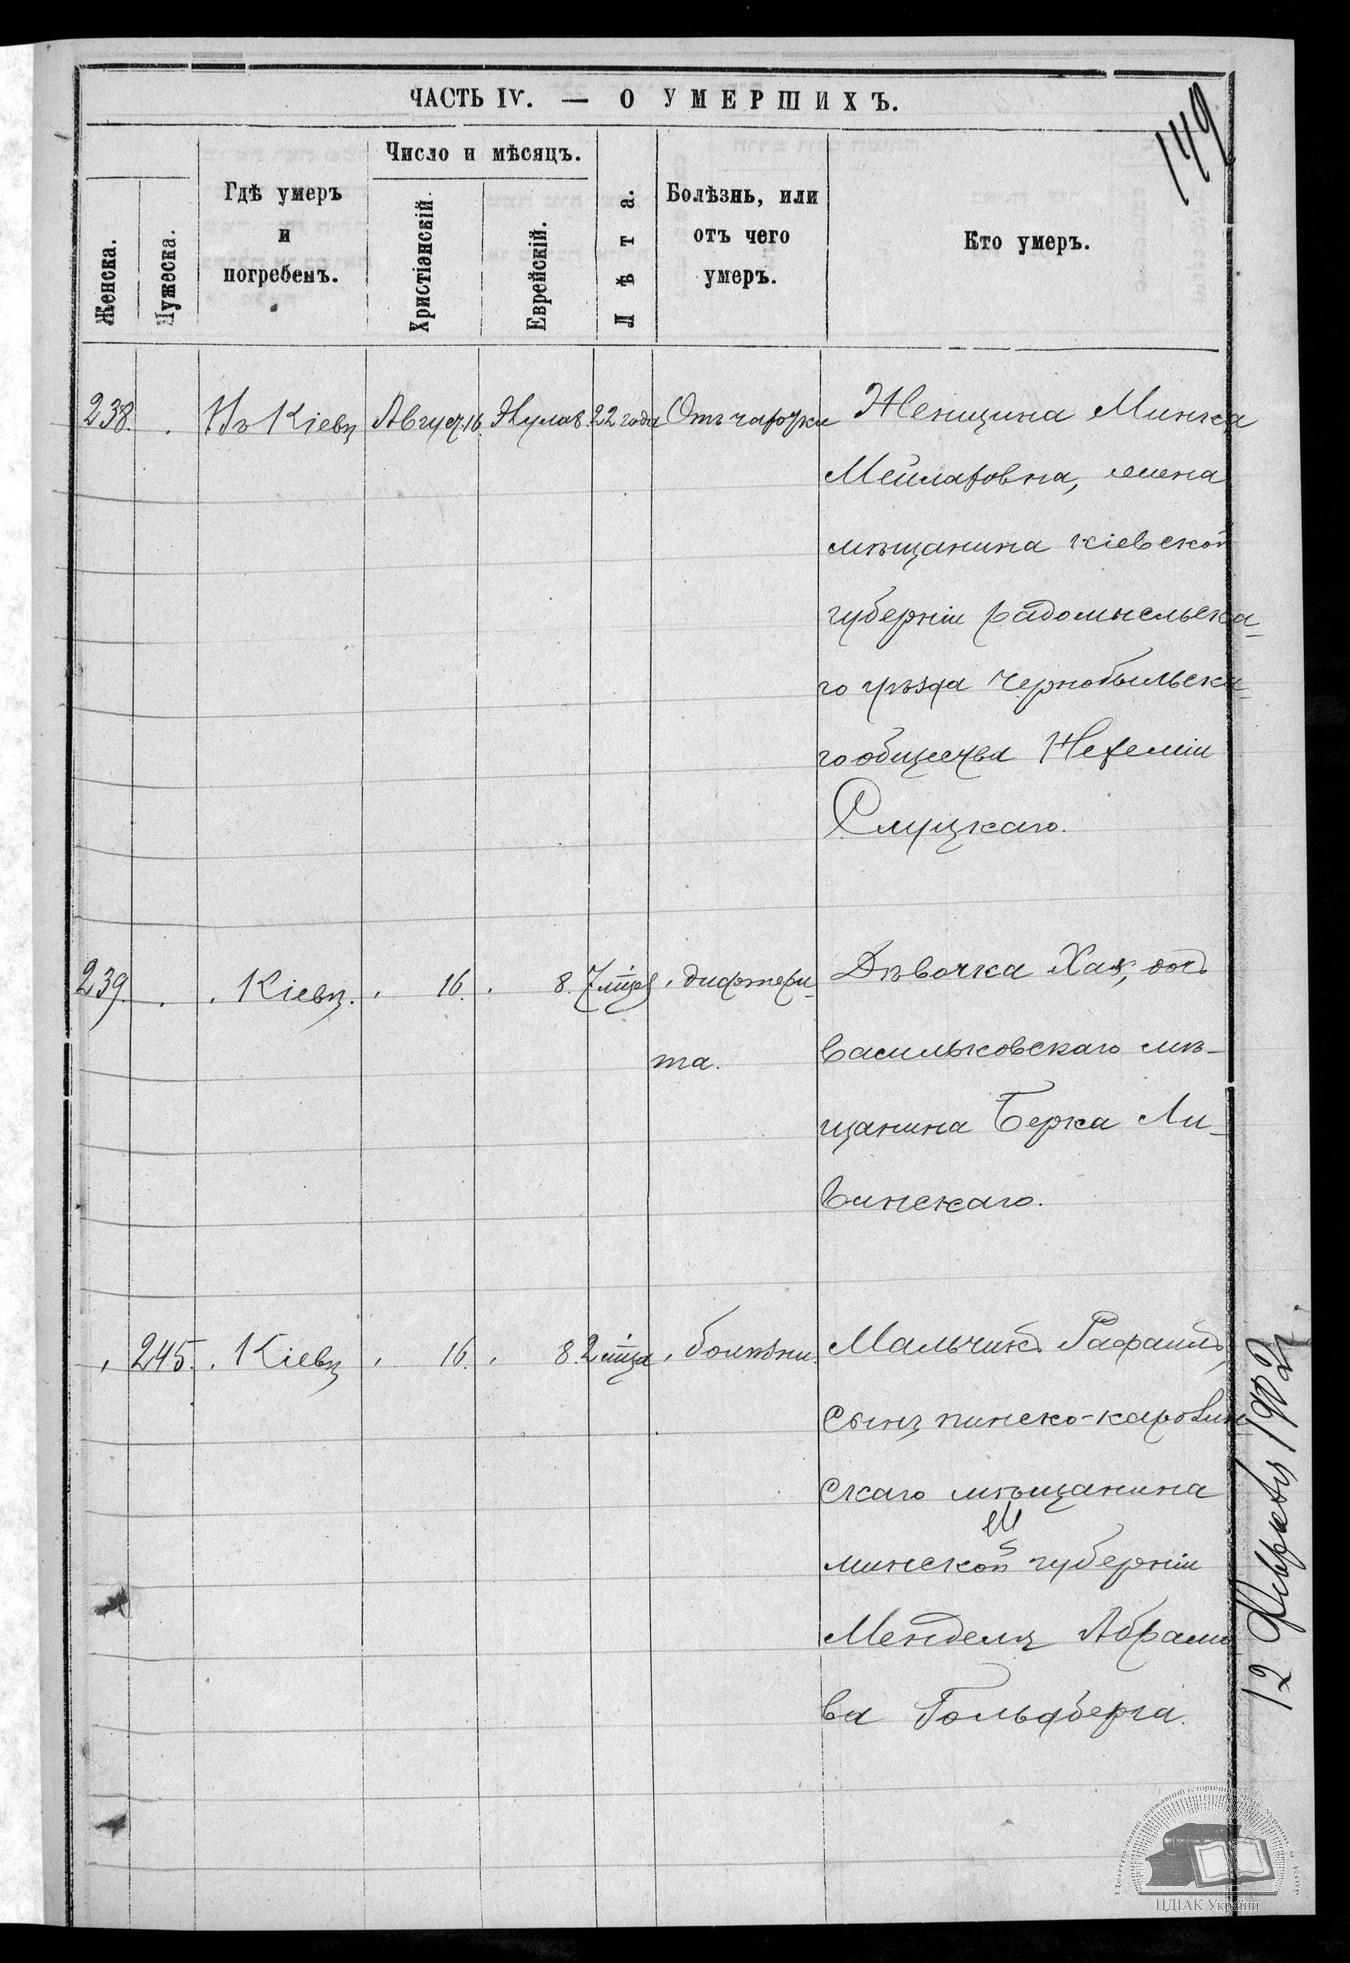 ЧАСТЬ IV. — О УМЕРШИХЪ.
149
Женска.
Мужеска.
Гдѣ умеръ
и
погребенъ.
Число и мѣсяцъ.
Христіянскій.
Еврейскій.
Лѣта.
Болѣзнь, или
отъ чего
умеръ.
Кто умеръ.
238. Въ Кіевѣ Август. 16. Элула 8. 22 года Отъ чахотки Женщина Минка
Мейлаховна, жена
мѣщанина кіевской
губерніи Радомысльска-
го уѣзда Чернобыльска-
го общества Нехеміи
Слуцкаго.
239. Кіевѣ. 16. 8. 7 м-цев дифтери- Дѣвочка Хая, доч
та. Васильковскаго мѣ-
щанина Берка Ли-
винскаго.
245. Кіевѣ 16. 8. 2 м-ца болѣзни. Мальчикъ Рафаилъ,
сынъ пинско-каролин
скаго мѣщанина
минской губерніи
Менделя Абрамо
ва Гольдберга.
12 февраля 1902 г.
ЦДІАК України